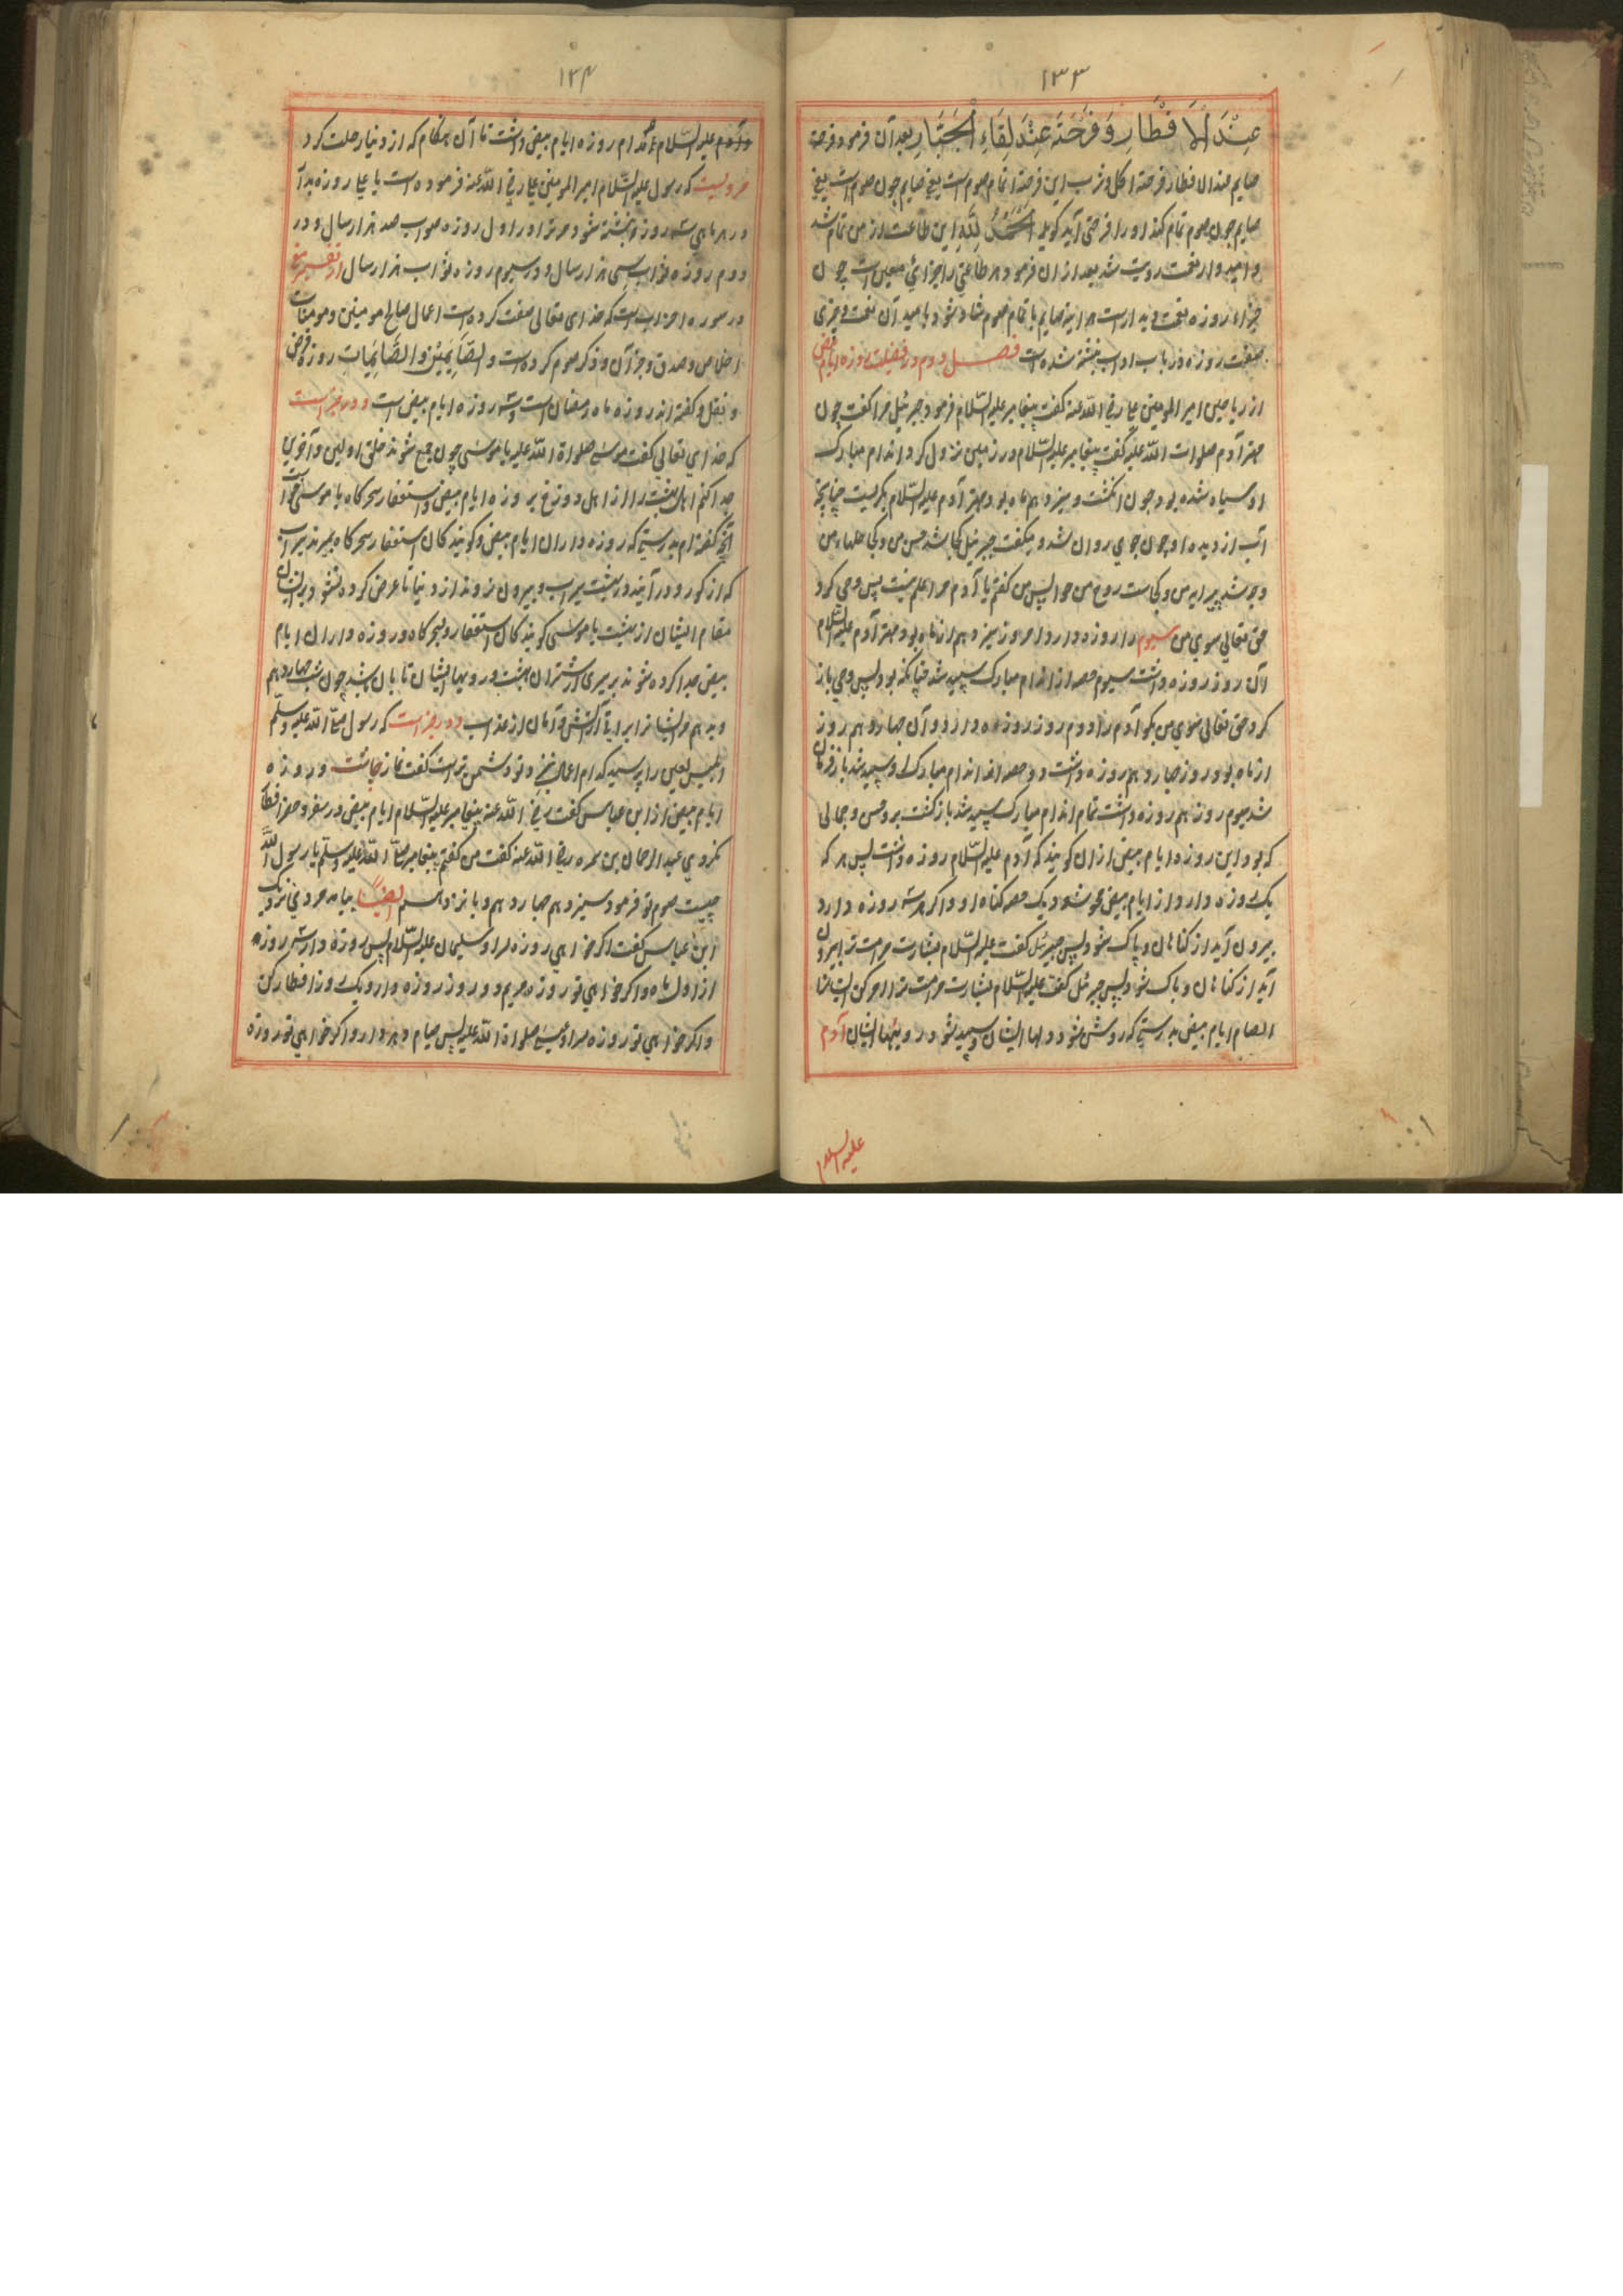 ۱۳۳
عِنْدَ الْاِفْطَارِ وَ فَرْحَتَه عِنْدَ لِقَاءِ الْجَبَّارِ بعد آن فرمود فرحة
صایم عند الافطار فرحة اکل و شرب این فرحة اتمام صوم است یعنی صایم چون صوم است یعنی
صایم چون صوم تمام کند او را فرحتی آید کوید اَلْحَمْدُ لِلّٰه این طاعت از من تمام شد
و امیدوار نعمت رویت شد بعد از آن فرمود هر طاعتی را جزائی معین است چون
جزاء روزه نعمت دیدار است هر آینه صایم باتمام صوم شاد شود بامید آن نعمت و جزی
صفت روزه در باب اداب نبشته شده است فصل دوم در فضیلت روزه ایام بیض
از ریاحین امیر المومنین علی رضی الله عنه کفت پیغامبر علیه السّلام فرمود جبرئیل مرا کفت چون
مهتر آدم صلوات الله علیه کفت پیغامبر علیه السّلام در زمین نزول کرد و اندام مبارک
او سیاه شده بود چون انکشت و سیزدهم ماه بود مهتر آدم علیه السّلام بکریست چنانچه
آب از دیده او چون جوی روان شد و میکفت جبرئیل کجا شد حسن من و کجا حلهاء من
و چه شد پیرایه من و کجاست روح من حوا پس من کفتم یا آدم مرا علم نیست پس وحی کرد
حق تعالی سوی من سیوم را روزه دارد امروز سیزدهم از ماه بود مهتر آدم علیه السّلام
آن روز روزه داشت سیوم حصه از اندام مبارک سپید شد چنانکه بود پس وحی باز
کرد حق تعالی سوی من بکو آدم را دوم روز روزه دارد و آن چهاردهم روز
از ماه بود روز چهاردهم روزه داشت دو حصه اندام مبارک او سپید شد باز فرمان
شد سیوم روز هم روزه داشت تمام اندام مبارک سپید شد باز کشت بر و حسن و جمالی
که بود این روزه ایام بیض از آن کویند که آدم علیه السّلام روزه داشت پس هر که
یک روزه دارد از ایام بیض محو شود یک حصه کناه او و اکر هر سه روزه دارد
بیرون آید از کناهان و پاک شود پس جبرئیل کفت علیه السّلام بشارت مر امت ترا بیرون
آید از کناهان و پاک شود پس جبرئیل کفت علیه السّلام بشارت مر امت ترا امر کن ایشانرا
الصام ایام بیض بدرستی که روشن شود دلها ایشان و سپید شود رویها ایشان آدم
علیه السلام
۱۳۴
و آدم علیه السّلام مدام روزه ایام بیض داشت تا آن هنکام که از دنیا رحلت کرد
مرویست که رسول علیه السّلام امیر المومنین علی رضی الله عنه فرموده است یا علی روزه بدار
در هر ماهی سه روز نبشته شود مر ترا در اول روزه صواب صد هزار سال و در
دوم روزه ثواب سی هزار سال و در سیوم روزه ثواب هزار سال از تفسیر
در سوره احزاب است که خدای تعالی صفت کرده است اعمال صالح مومنین و مومنات
اخلاص و صدق و جز آن و ذکر صوم کرده است وَ الصَّایِمِیْنَ وَ الصَّایِمَاتِ روزه فرض
و نفل و کفته اند روزه ماه رمضان است و سه روزه ایام بیض است و در خبر است
که خدای تعالی کفت موسی صلوة الله علیه یا موسی چون جمع شوند خلق اولین و آخرین
جدا کنم اهل بهشت را از اهل دوزخ بروزه ایام بیض و استغفار سحرکاه یا موسی
آنچه کفته ام بدرستی که روزه داران ایام بیض و کویندکان استغفار سحرکاه بمیرند سیراب
که از کور و در آیند در بهشت سیراب و بیرون نروند از دنیا تا عرض کرده نشود بر ایشان
مقام ایشان از بهشت یا موسی کویندکان استغفار و بسحرکاه و روزه داران ایام
بیض جدا کرده شوند بر سرای شتران بهشت و رویها ایشان تابان باشد چون شب چهاردهم
و بدهم مر ایشانرا براة از آتش و امان از عذاب و در خبر است که رسول صلّی الله علیه و سلّم
ابلیس لعین را پرسید کدام اعمال نیز و تو دشمن تر است کفت نماز چاشت و روزه
ایام بیض از ابن عباس کفت رضی الله عنه پیغامبر علیه السّلام ایام بیض در سفر و حضر افطار
نکردی عبد الرحمان بن سمره رضی الله عنه کفت من کفتم پیغامبر صلّی الله علیه و سلّم یا رسول الله
چیست صوم تو فرمود سیزدهم چهاردهم و پانزدهم ایضًا بیامد مردی نزدیک
ابن عباس کفت اکر خواهی روزه سلیمان علیه السّلام پس روزه دار سه روزه
از اول ماه و اکر خواهی تو روزه مریم دو روز روزه دار و یک روز افطار کن
و اکر خواهی تو روزه عیسی صلوة الله علیه پس صیام دهر دار و اکر خواهی تو روزه